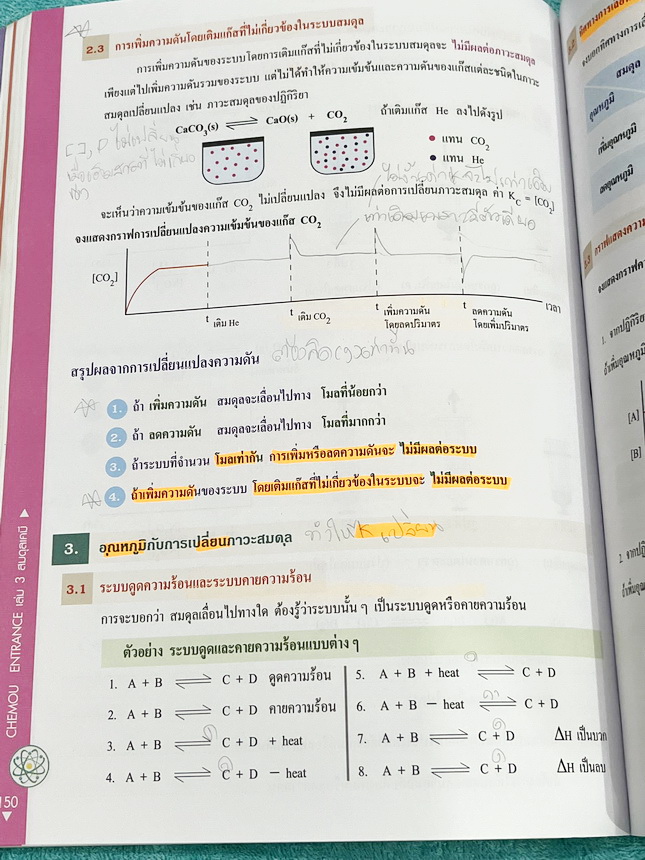 2.3 การเพิ่มความดันโดยเติมแก๊สที่ไม่เกี่ยวข้องในระบบสมดุล
การเพิ่มความดันของระบบโดยการเติมแก๊สที่ไม่เกี่ยวข้องในระบบสมดุลจะ ไม่มีผลต่อภาวะสมดุล
เพียงแต่ไปเพิ่มความดันรวมของระบบ แต่ไม่ได้ทำให้ความเข้มข้นและความดันของแก๊สแต่ละชนิดในภาวะ
สมดุลเปลี่ยนแปลง เช่น ภาวะสมดุลของปฏิกิริยา
CaCO3(s) ⇌ CaO(s) + CO2 ถ้าเติมแก๊ส He ลงไปดังรูป
แทน CO2
แทน He
จะเห็นว่าความเข้มข้นของแก๊ส CO2 ไม่เปลี่ยนแปลง จึงไม่มีผลต่อการเปลี่ยนภาวะสมดุล ค่า KC = [CO2]
จงแสดงกราฟการเปลี่ยนแปลงความเข้มข้นของแก๊ส CO2
[CO2]
t เติม He
t เติม CO2
t เพิ่มความดัน
โดยลดปริมาตร
t ลดความดัน
โดยเพิ่มปริมาตร
เวลา
สรุปผลจากการเปลี่ยนแปลงความดัน
1. ถ้า เพิ่มความดัน สมดุลจะเลื่อนไปทาง โมลที่น้อยกว่า
2. ถ้า ลดความดัน สมดุลจะเลื่อนไปทาง โมลที่มากกว่า
3. ถ้าระบบที่จำนวน โมลเท่ากัน การเพิ่มหรือลดความดันจะ ไม่มีผลต่อระบบ
4. ถ้าเพิ่มความดันของระบบ โดยเติมแก๊สที่ไม่เกี่ยวข้องในระบบจะ ไม่มีผลต่อระบบ
3. อุณหภูมิกับการเปลี่ยนภาวะสมดุล ทำให้ K เปลี่ยน
3.1 ระบบดูดความร้อนและระบบคายความร้อน
การจะบอกว่า สมดุลเลื่อนไปทางใด ต้องรู้ว่าระบบนั้น ๆ เป็นระบบดูดหรือคายความร้อน
ตัวอย่าง ระบบดูดและคายความร้อนแบบต่าง ๆ
1. A + B ⇌ C + D ดูดความร้อน
2. A + B ⇌ C + D คายความร้อน
3. A + B ⇌ C + D + heat
4. A + B ⇌ C + D − heat
5. A + B + heat ⇌ C + D
6. A + B − heat ⇌ C + D
7. A + B ⇌ C + D ΔH เป็นบวก
8. A + B ⇌ C + D ΔH เป็นลบ
CHEMOU ENTRANCE เล่ม 3 สมดุลเคมี
150
สมดุล
อุณหภูมิ
เพิ่มอุณหภูมิ
ลดอุณหภูมิ
[A]
[B]